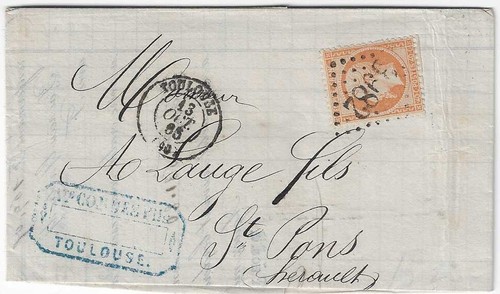 TOULOUSE
13
OCT.
65
(30)
3982
Monsieur
A Lauge fils
St Pons
herault
TOULOUSE.